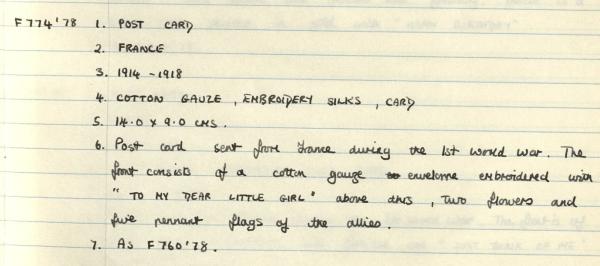 F774'78 1. POST CARD
2. FRANCE
3. 1914 - 1918
4. COTTON GAUZE, EMBROIDERY SILKS, CARD
5. 14.0 x 9.0 CMS.
6. Post card sent from France during the 1st world war. The
front consists of a cotton gauze envelome embroidered with
"TO MY DEAR LITTLE GIRL" above this, two flowers and
five pennant flags of the allies.
7. As F760'78.